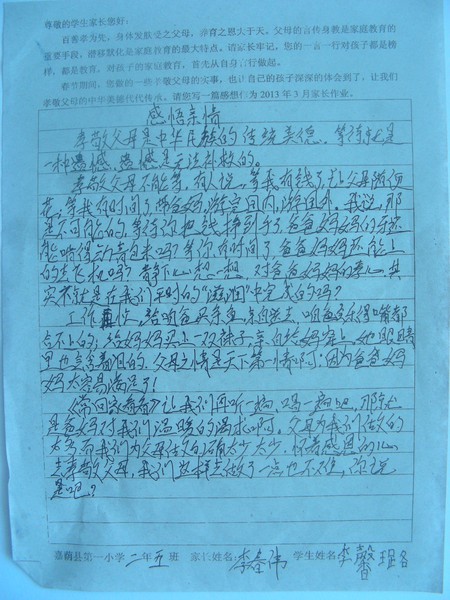 尊敬的学生家长您好：
百善孝为先。身体发肤受之父母，养育之恩大于天。父母的言传身教是家庭教育的
重要手段，潜移默化是家庭教育的最大特点。请家长牢记，您的一言一行对孩子都是榜
样，都是教育。对孩子的家庭教育，首先从自身言行做起。
春节期间，您做的一些孝敬父母的实事，也让自己的孩子深深的体会到了，让我们
孝敬父母的中华美德代代传承。请您写一篇感想作为2013年3月家长作业。
感悟亲情
孝敬父母是中华民族的传统美德，等待就是
一种遗憾，遗憾是无法补救的。
孝敬父母不能等，有人说，等我有钱了，让父母
花，等我有时间了，带爸妈游完国内，游国外。我说，那
是不可能的，等待你也钱挣到手了爸爸妈妈的牙还
能啃得动青包米吗？等你有时间了，爸爸妈妈还能上
的去飞机吗？静下心想一想，对爸爸妈妈的孝心，其
实不就是在我们平时的“滋润”中完成的吗？
工作再忙，给咱爸买条鱼，亲自送去，咱爸会乐得嘴都
合不上的；给妈妈买上一双袜子，亲自给妈穿上，她眼睛
里也会含着泪的。父母之情是天下第一情啊，因为爸爸妈
妈太容易满足了！
《常回家看看》让我们再听一遍，唱一遍吧，那就
是爸妈对我们温暖的渴求啊，父母为我们做的
太多，而我们为父母做的却太少太少，怀着感恩的心
去孝敬父母，我们这样去做了一点也不难，你说
是吧？
嘉荫县第一小学 二年五班 家长姓名：李春伟 学生姓名：李馨瑶